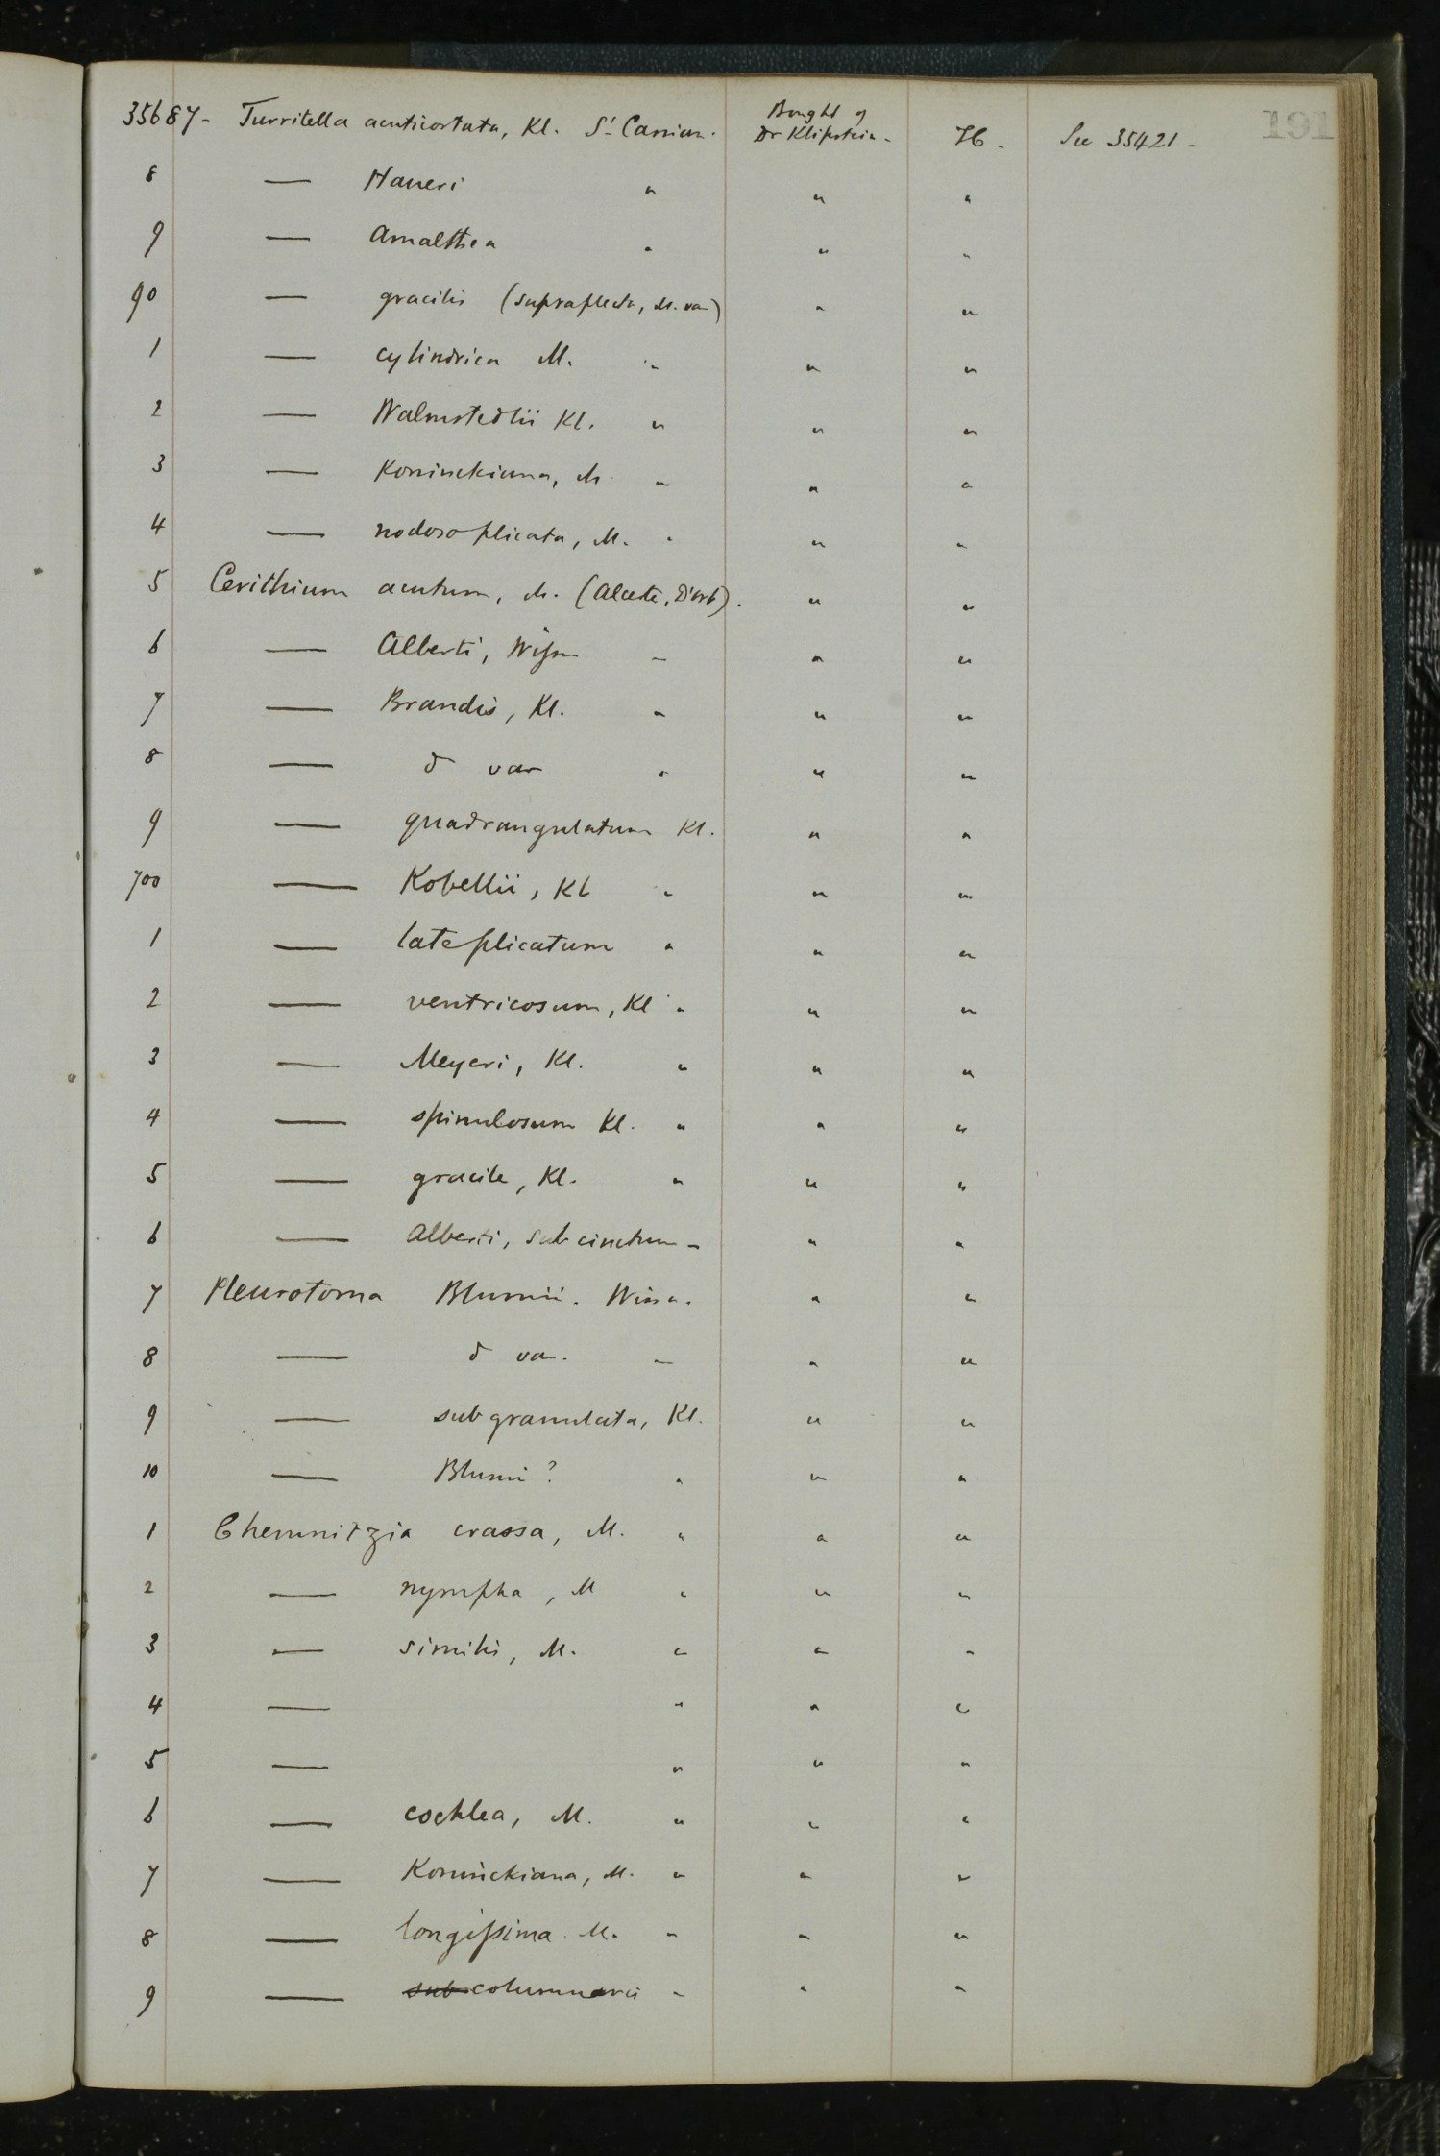 191
35687- Turritella acuticostata, Kl. St Cassian. Bought of Dr Klipstein. H. See 35421 -
8 — Haueri " " "
9 — Amalthea " " "
90 — gracilis (supraplecta, M. var) " "
1 — cylindrica M. " " "
2 — Walmstedtii Kl. " " "
3 — Koninckiana, M. " " "
4 — nodosoplicata, M. " " "
5 Cerithium acutum, M. (Alceste, D'orb). " "
6 — Alberti, Wissm " " "
7 — Brandis, Kl. " " "
8 — d var " " "
9 — quadrangulatum Kl. " "
700 — Kobellii, Kl " " "
1 — lateplicatum " " "
2 — ventricosum, Kl " " "
3 — Meyeri, Kl. " " "
4 — spinulosum Kl. " " "
5 — gracile, Kl. " " "
6 — Alberti, subcinctum " " "
7 Pleurotoma Blumii. Wissm. " "
8 — d var. " " "
9 — subgranulata, Kl. " "
10 — Blumii? " " "
1 Chemnitzia crassa, M. " " "
2 — nympha, M " " "
3 — similis, M. " " "
4 — " " "
5 — " " "
6 — cochlea, M. " " "
7 — Koninckiana, M. " " "
8 — longissima. M. " " "
9 — subcolumnaris " " "